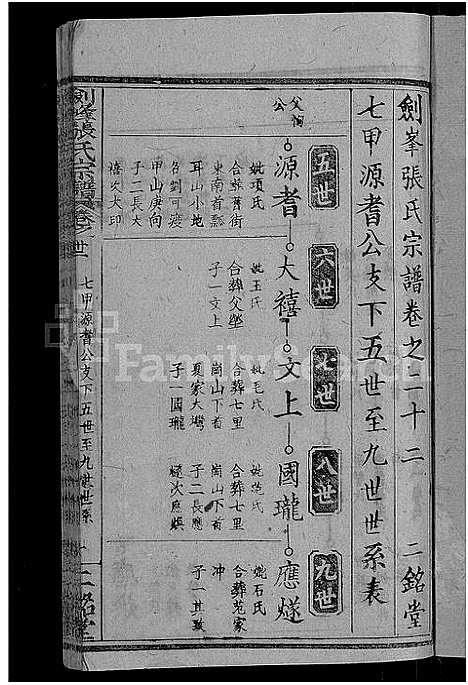 劍峯張氏宗譜卷之二十二 二銘堂
七甲源耆公支下五世至九世世系表
五世
六世
七世
八世
九世
父 公
源耆
大禧
文上
國瓏
應燧
妣項氏
合葬舊街
東南首瓢
耳山小地
名劉可
甲山庚向
子二長大
禧次大印
妣王氏
合葬父塋
子一文上
妣毛氏
合葬七里
崗山下首
夏家大塆
子一國瓏
妣范氏
合葬七里
崗山下首
子二長應
燧次應
妣石氏
合葬范家
冲
子一其
劍峯張氏宗譜卷之廿二
七甲源耆公支下五世至九世世系
一
二銘堂
FamilySearch